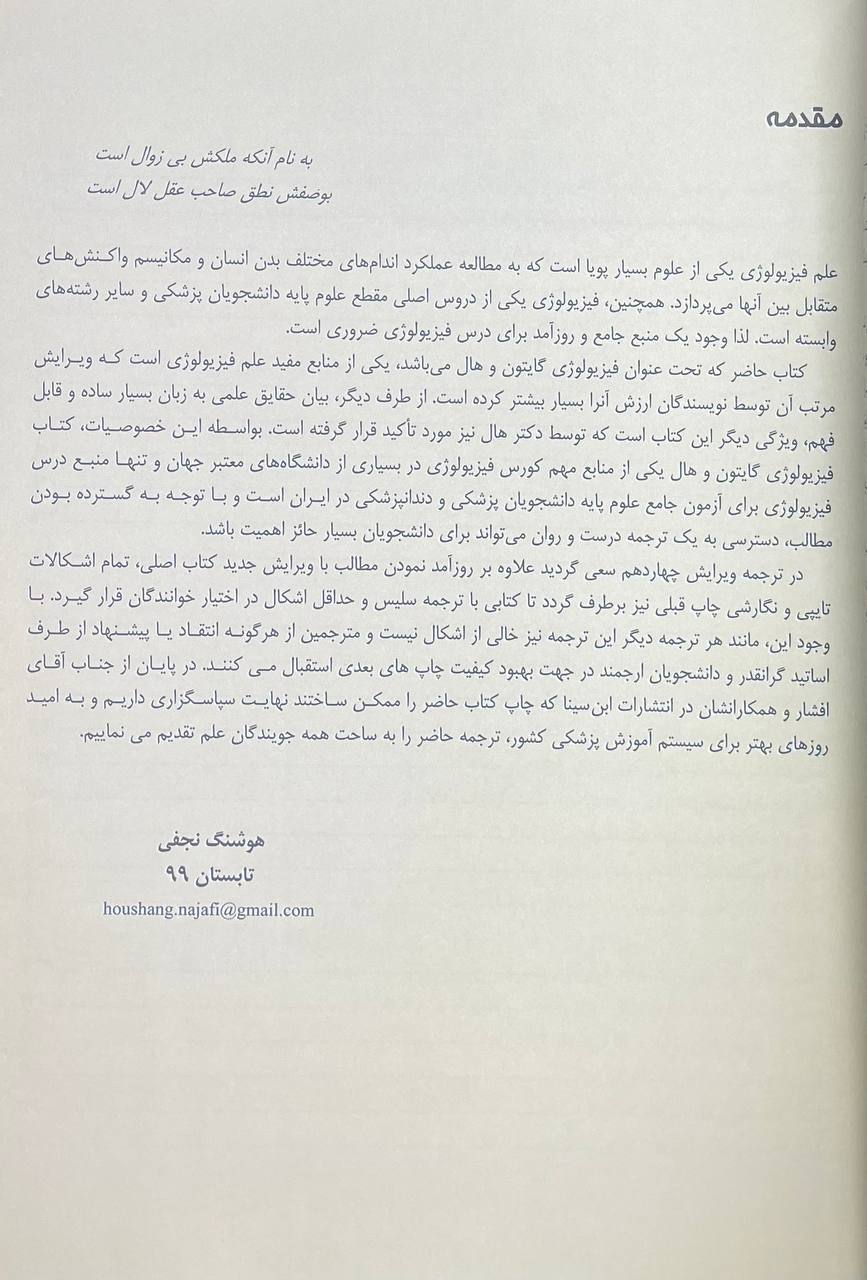 مقدمه
به نام آنکه ملکش بی زوال است
بوصفش نطق صاحب عقل لال است
علم فیزیولوژی یکی از علوم بسیار پویا است که به مطالعه عملکرد اندام‌های مختلف بدن انسان و مکانیسم واکنش‌های
متقابل بین آنها می‌پردازد. همچنین، فیزیولوژی یکی از دروس اصلی مقطع علوم پایه دانشجویان پزشکی و سایر رشته‌های
وابسته است. لذا وجود یک منبع جامع و روزآمد برای درس فیزیولوژی ضروری است.
کتاب حاضر که تحت عنوان فیزیولوژی گایتون و هال می‌باشد، یکی از منابع مفید علم فیزیولوژی است که ویرایش
مرتب آن توسط نویسندگان ارزش آنرا بسیار بیشتر کرده است. از طرف دیگر، بیان حقایق علمی به زبان بسیار ساده و قابل
فهم، ویژگی دیگر این کتاب است که توسط دکتر هال نیز مورد تأکید قرار گرفته است. بواسطه این خصوصیات، کتاب
فیزیولوژی گایتون و هال یکی از منابع مهم کورس فیزیولوژی در بسیاری از دانشگاه‌های معتبر جهان و تنها منبع درس
فیزیولوژی برای آزمون جامع علوم پایه دانشجویان پزشکی و دندانپزشکی در ایران است و با توجه به گسترده بودن
مطالب، دسترسی به یک ترجمه درست و روان می‌تواند برای دانشجویان بسیار حائز اهمیت باشد.
در ترجمه ویرایش چهاردهم سعی گردید علاوه بر روزآمد نمودن مطالب با ویرایش جدید کتاب اصلی، تمام اشکالات
تایپی و نگارشی چاپ قبلی نیز برطرف گردد تا کتابی با ترجمه سلیس و حداقل اشکال در اختیار خوانندگان قرار گیرد. با
وجود این، مانند هر ترجمه دیگر این ترجمه نیز خالی از اشکال نیست و مترجمین از هرگونه انتقاد یا پیشنهاد از طرف
اساتید گرانقدر و دانشجویان ارجمند در جهت بهبود کیفیت چاپ های بعدی استقبال می کنند. در پایان از جناب آقای
افشار و همکارانشان در انتشارات ابن‌سینا که چاپ کتاب حاضر را ممکن ساختند نهایت سپاسگزاری داریم و به امید
روزهای بهتر برای سیستم آموزش پزشکی کشور، ترجمه حاضر را به ساحت همه جویندگان علم تقدیم می نماییم.
هوشنگ نجفی
تابستان ۹۹
houshang.najafi@gmail.com